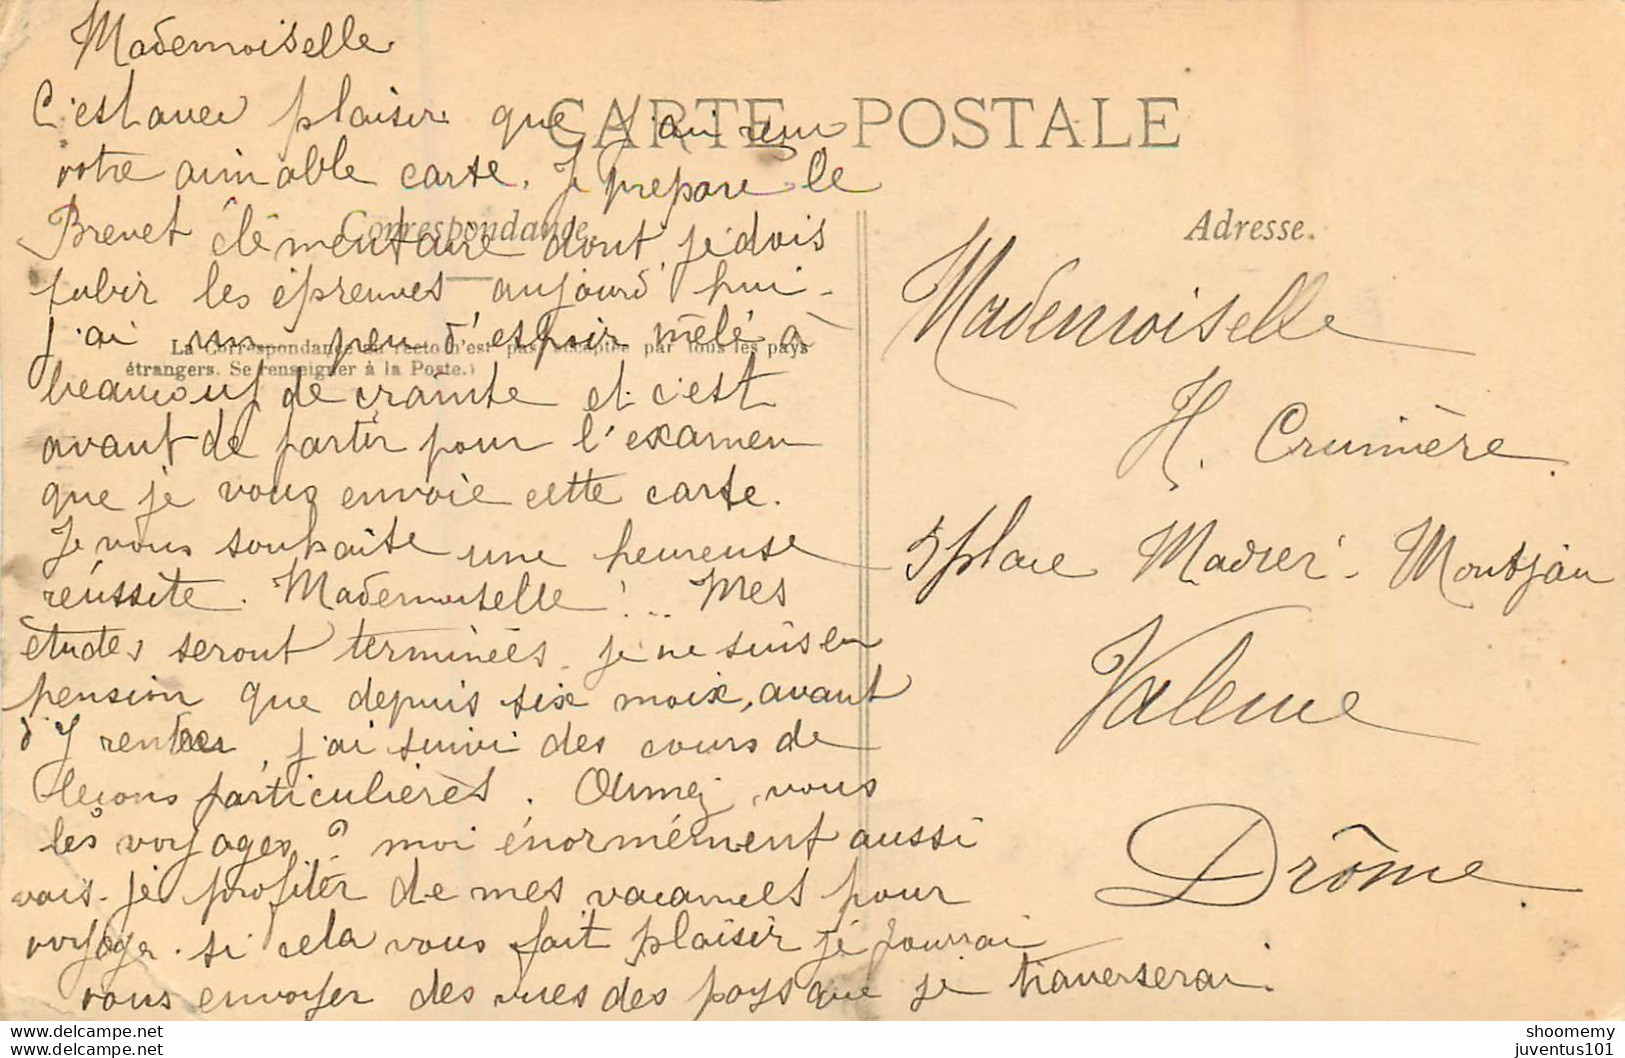 Mademoiselle
C'est avec plaisir que j'ai reçu
votre aimable carte. Je prepare le
Brevet élémentaire dont je dois
subir les épreuves aujourd'hui -
j'ai un peu d'espoir mêlé à
beaucoup de crainte et c'est
avant de partir pour l'examen
que je vous envoie cette carte.
Je vous souhaite une heureuse
réussite. Mademoiselle ! .. Mes
études seront terminées. je ne suis en
pension que depuis six moix, avant
d'y rentrer j'ai suivi des cours de
leçons particulières. Aimez vous
les voyages ? moi énormément aussi
vais-je profiter de mes vacances pour
voyager. si cela vous fait plaisir je pourrai
vous envoyer des vues des pays que je traverserai.
CARTE POSTALE
Correspondance.
La Correspondance au recto n'est pas acceptée par tous les pays
étrangers. Se renseigner à la Poste.)
Adresse.
Mademoiselle
H. Crumière.
5 place Madier - Montjau
Valence
Drôme
delcampe.net
delcampe.com
shoomemy
juventus101